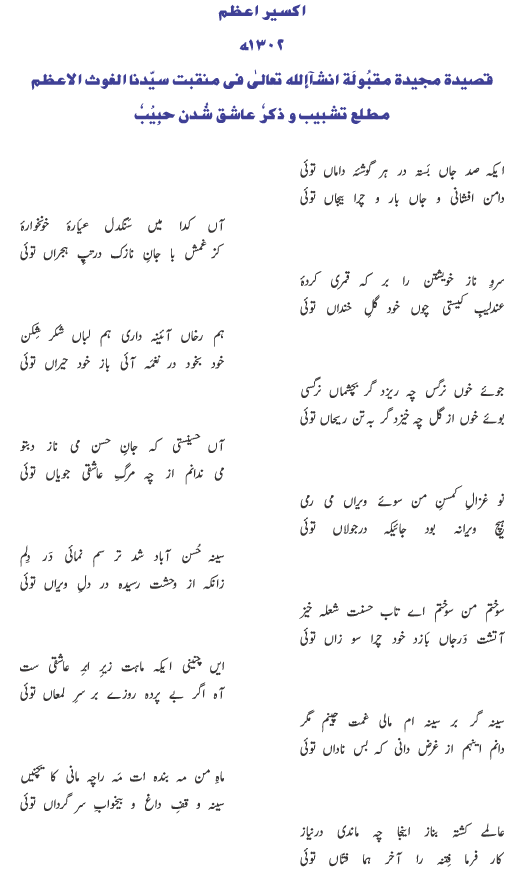 اکسیر اعظم
۱۳۰۲ھ
قصیدة مجیدة مقبُولَة انشآءالله تعالیٰ فی منقبت سیّدنا الغوث الاعظم
مطلع تشبیب و ذکرِ عاشق شُدن حبیبٗ
ایکہ صد جاں بَستہ در ہر گوشۂ داماں توئی
دامن افشانی و جاں بار و چرا بیجاں توئی
آں کدا میں سنگدل عیّارۂ خونخوارۂ
کز غمش با جانِ نازک درتپِ ہجراں توئی
سروِ ناز خویشتن را بر کہ قمری کردۂ
عندلیبِ کیستی چوں خود گلِ خنداں توئی
ہم رخاں آئینہ داری ہم لباں شکر شِکن
خود بخود در نغمہ آئی باز خود حیراں توئی
جوئے خوں نرگس چہ ریزد گر بچشماں نرگسی
بوئے خوں از گل چہ خیزد گر بہ تن ریحاں توئی
آں حسینستی کہ جانِ حسن می ناز دبتو
می ندانم از چہ مرگِ عاشقی جویاں توئی
نو غزالِ کمسنِ من سوئے ویراں می رمی
ہیچ ویرانہ بود جائیکہ درجولاں توئی
سینہ حُسن آباد شد تر سم نمائی دَر دِلم
زانکہ از وحشت رسیدہ در دلِ ویراں توئی
سوختم من سوختم اے تاب حسنت شعلہ خیز
آتشت دَرجاں بازد خود چرا سو زاں توئی
ایں چنینی ایکہ ماہت زیرِ ابرِ عاشقی ست
آہ اگر بے پردہ روزے بر سرِ لمعاں توئی
سینہ گر بر سینہ ام مالی غمت چینم مگر
دانم اینہم از غرض دانی کہ بس ناداں توئی
ماہِ من مہ بندہ ات مَہ راچہ مانی کا ینچنیں
سینہ و قفِ داغ و بیخوابِ سر گرداں توئی
عالمے کشتہ بناز اینجا چہ ماندی درنیاز
کار فرما فِتنہ را آخر ہما فتّاں توئی